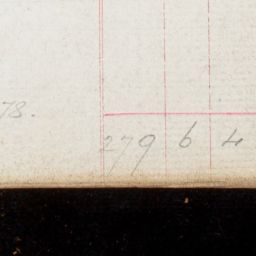 78.
279 6 4